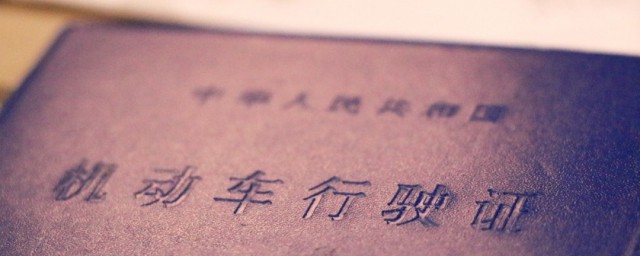 中华人民共和国
机动车行驶证